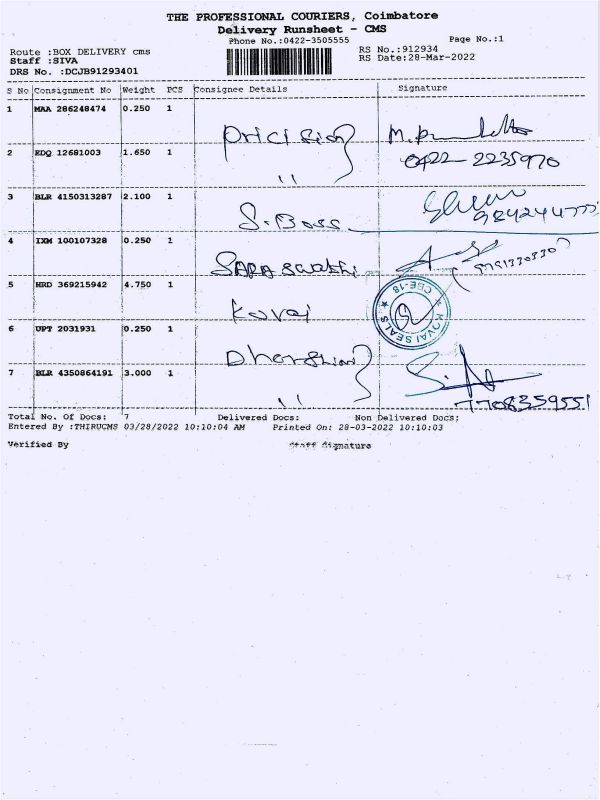 THE PROFESSIONAL COURIERS, Coimbatore
Delivery Runsheet - CMS
Phone No.:0422-3505555
Page No.:1
Route :BOX DELIVERY cms
RS No.:912934
Staff :SIVA
RS Date:28-Mar-2022
DRS No. :DCJB91293401
S No Consignment No Weight PCS Consignee Details Signature
1 MAA 286248474 0.250 1
2 EDQ 12681003 1.650 1 " 0422-2235970
3 BLR 4150313287 2.100 1 S. Boss
4 IXM 100107328 0.250 1 Saraswathi
5 HRD 369215942 4.750 1 Kovai
KOVAI SEALS ★ CBE-18 ★
6 UPT 2031931 0.250 1
7 BLR 4350864191 3.000 1 " 7708359551
Total No. Of Docs: 7 Delivered Docs: Non Delivered Docs:
Entered By :THIRUCMS 03/28/2022 10:10:04 AM Printed On: 28-03-2022 10:10:03
Verified By Staff Signature